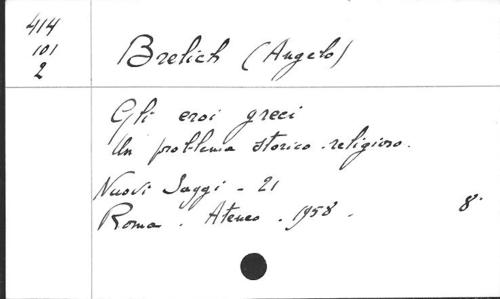 414
101
2
Brelich (Angelo)
Gli eroi greci
Un problema storico-religioso.
Nuovi Saggi - 21
Roma. Ateneo. 1958.
8°